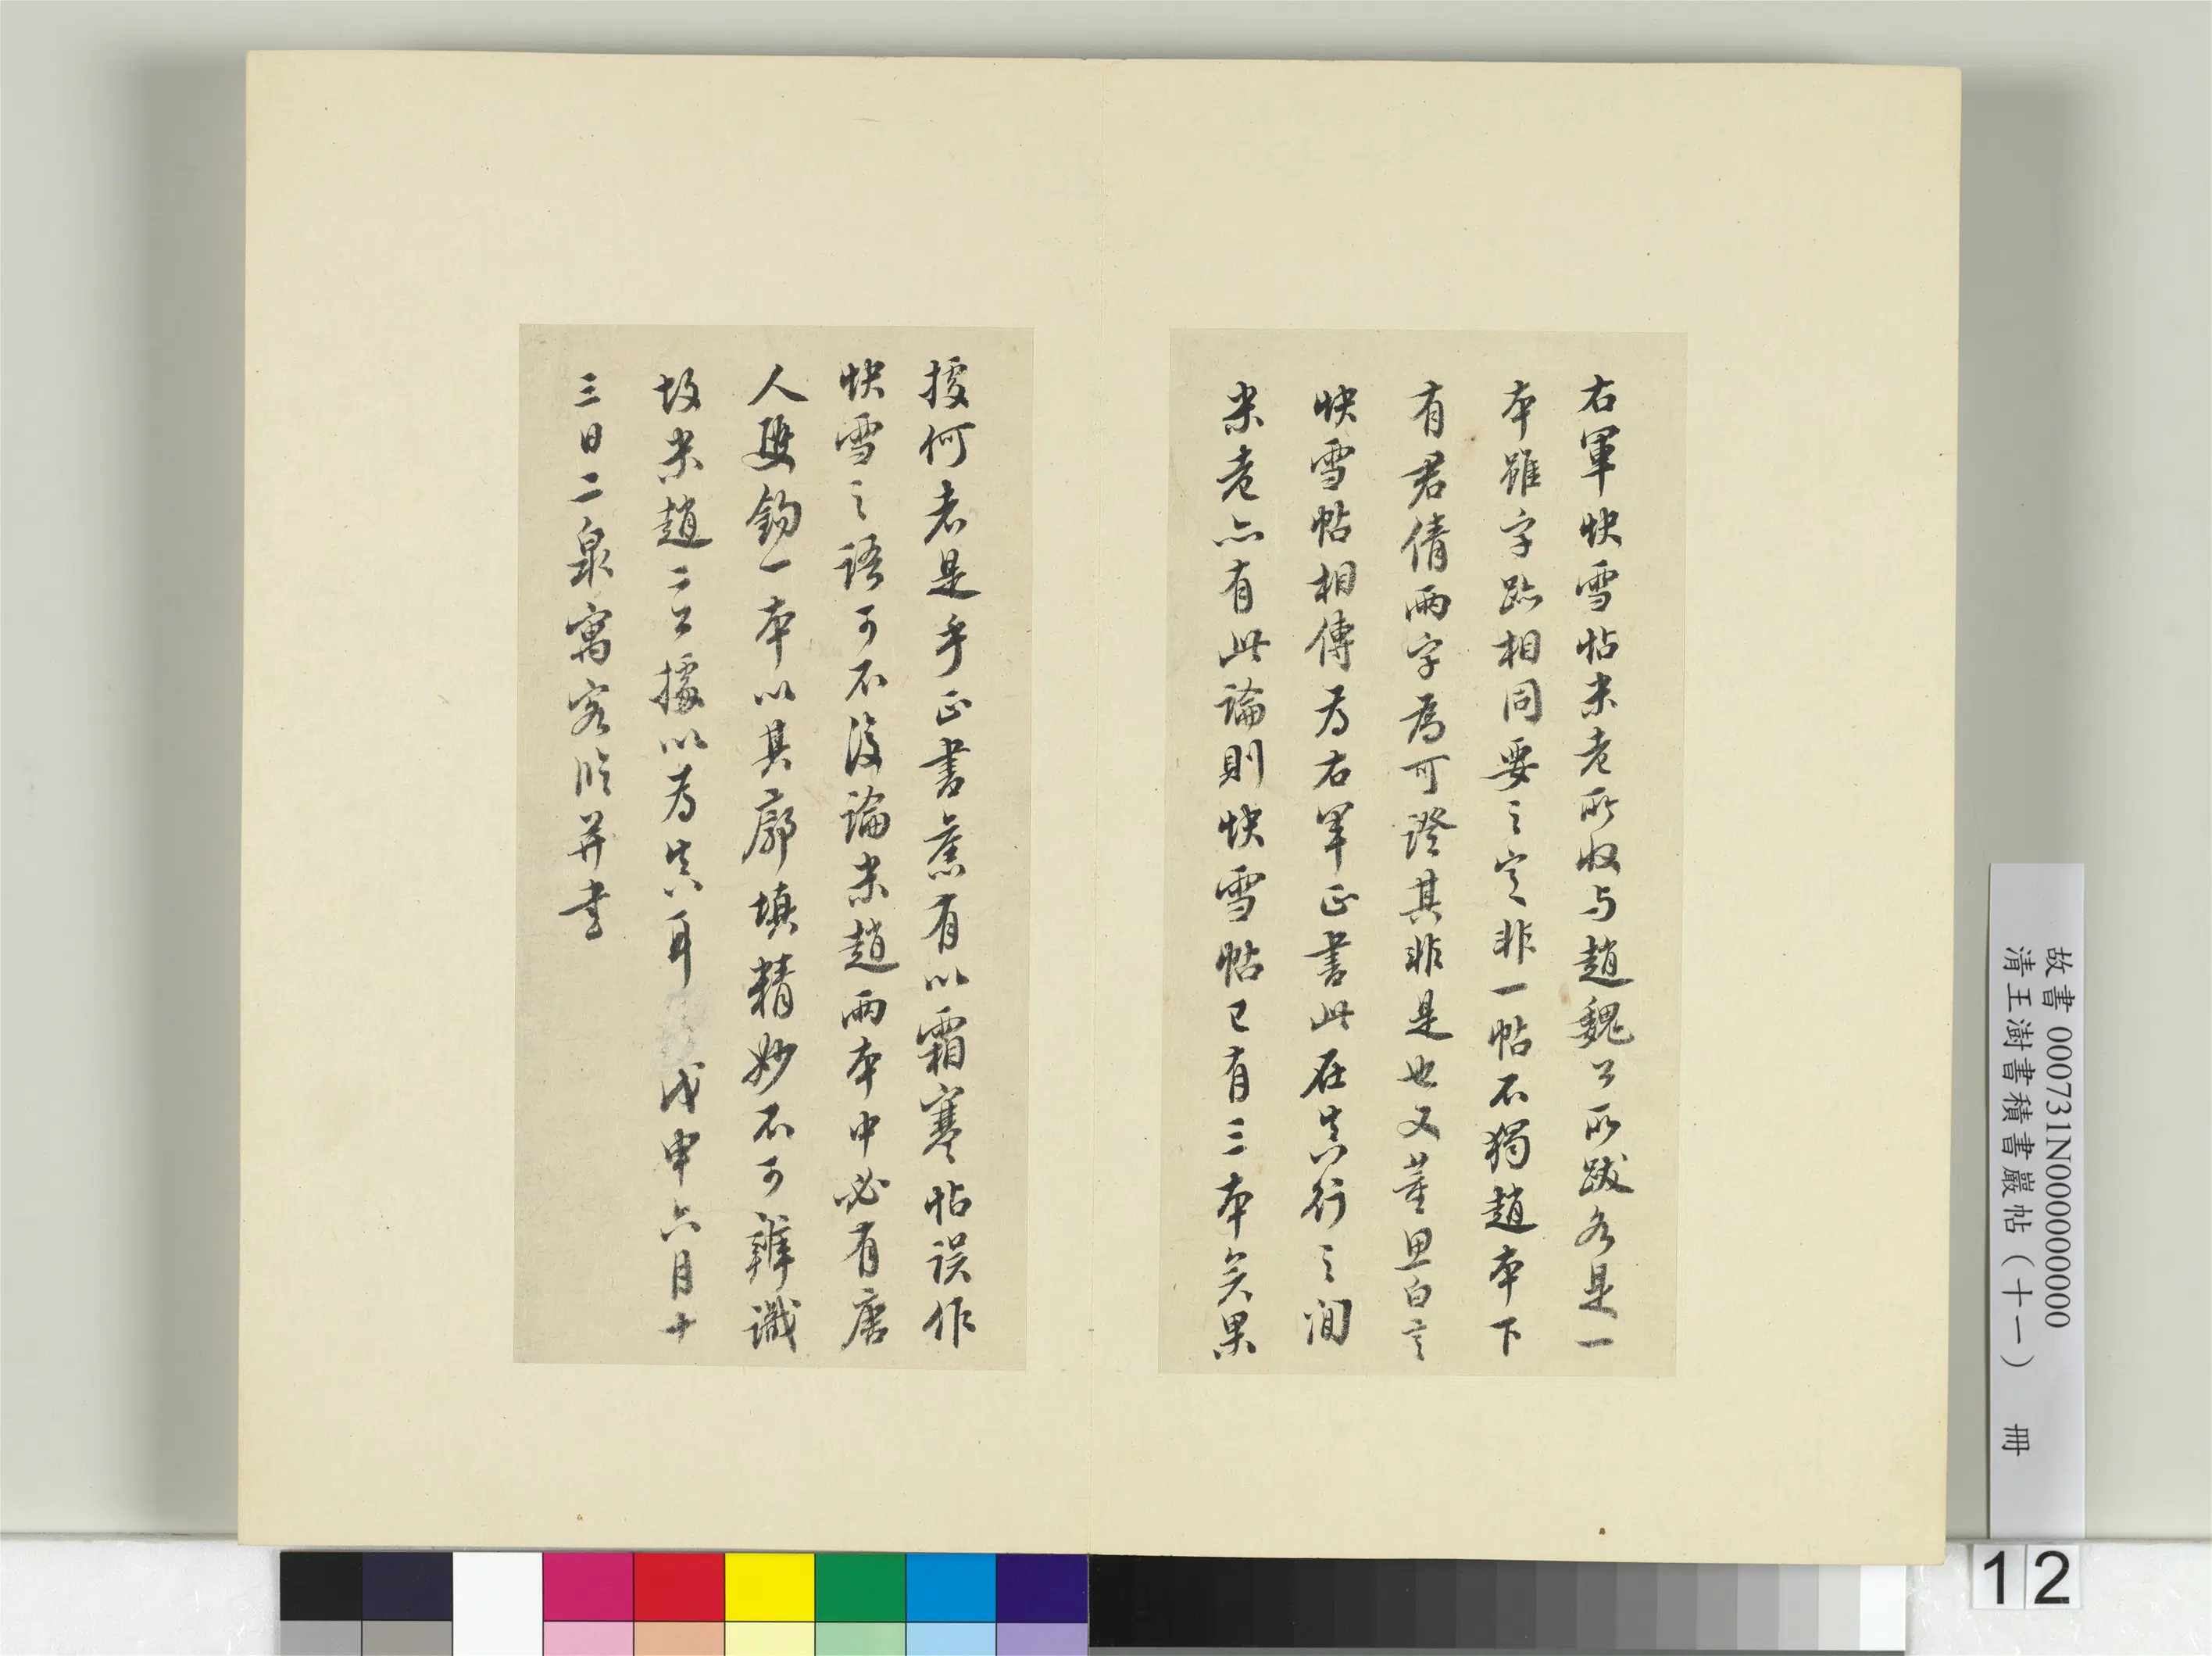 右軍快雪帖米老所收与趙魏公所跋各是一
本雖字跡相同要之定非一帖不獨趙本下
有君倩兩字為可證其非是也又董思白言
快雪帖相傳为右軍正書此在真行之間
米老亦有此論則快雪帖已有三本矣果
援何者是乎正書蕉有以霜寒帖误作
快雪之語可不復論米趙兩本中必有唐
人雙鉤一本以其廓填精妙不可辨識
故米趙二公據以为真耳 戊申六月十
三日二泉寓客临并書
故書 000731N000000000
清王澍書積書巖帖(十一) 冊
12